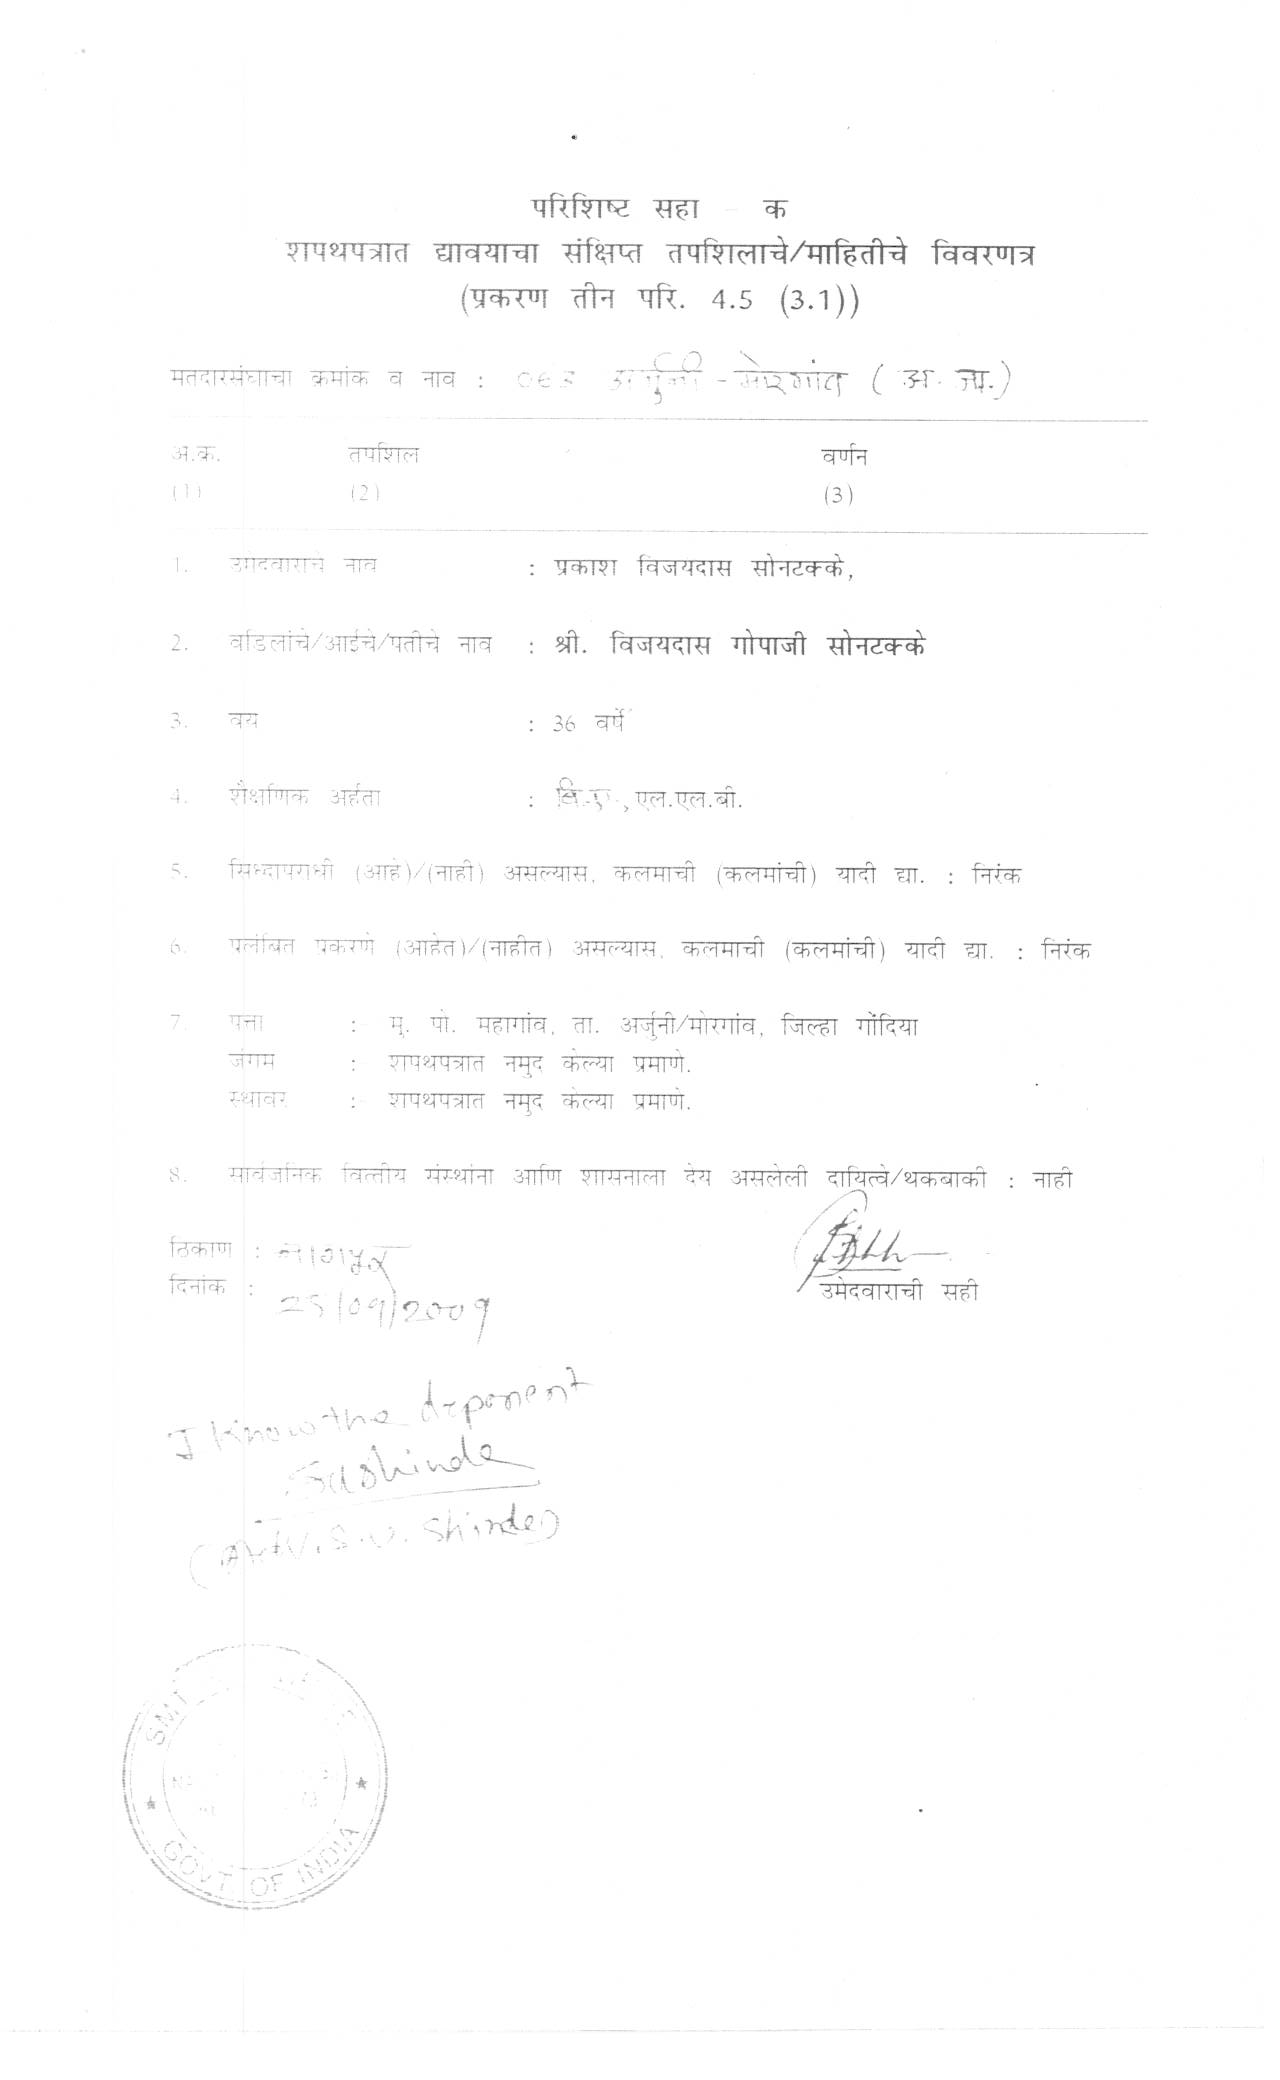 परिशिष्ट सहा - क
शपथपत्रात द्यावयाचा संक्षिप्त तपशिलाचे/माहितीचे विवरणत्र
(प्रकरण तीन परि. 4.5 (3.1))
मतदारसंघाचा क्रमांक व नाव : ०६३ अर्जुनी - मोरगांव ( अ. जा.)
अ.क. तपशिल वर्णन
(1) (2) (3)
1. उमेदवाराचे नाव : प्रकाश विजयदास सोनटक्के,
2. वडिलांचे/आईचे/पतीचे नाव : श्री. विजयदास गोपाजी सोनटक्के
3. वय : 36 वर्षे
4. शैक्षणिक अर्हता : बि.ए., एल.एल.बी.
5. सिध्दापराधी (आहे)/(नाही) असल्यास, कलमाची (कलमांची) यादी द्या. : निरंक
6. प्रलंबित प्रकरणे (आहेत)/(नाहीत) असल्यास, कलमाची (कलमांची) यादी द्या. : निरंक
7. पत्ता :- मु. पो. महागांव, ता. अर्जुनी/मोरगांव, जिल्हा गोंदिया
जंगम :- शपथपत्रात नमुद केल्या प्रमाणे.
स्थावर :- शपथपत्रात नमुद केल्या प्रमाणे.
8. सार्वजनिक वित्तीय संस्थांना आणि शासनाला देय असलेली दायित्वे/थकबाकी : नाही
ठिकाण : नागपुर
दिनांक : 25/09/2009
उमेदवाराची सही
I know the deponent
Sushinde
(Adv. S.V. Shinde)
SMT
GOVT OF INDIA